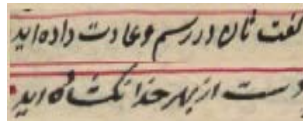 گفت نان در رسم و عادت داده اید
دست از بهر خدا نگشاده اید